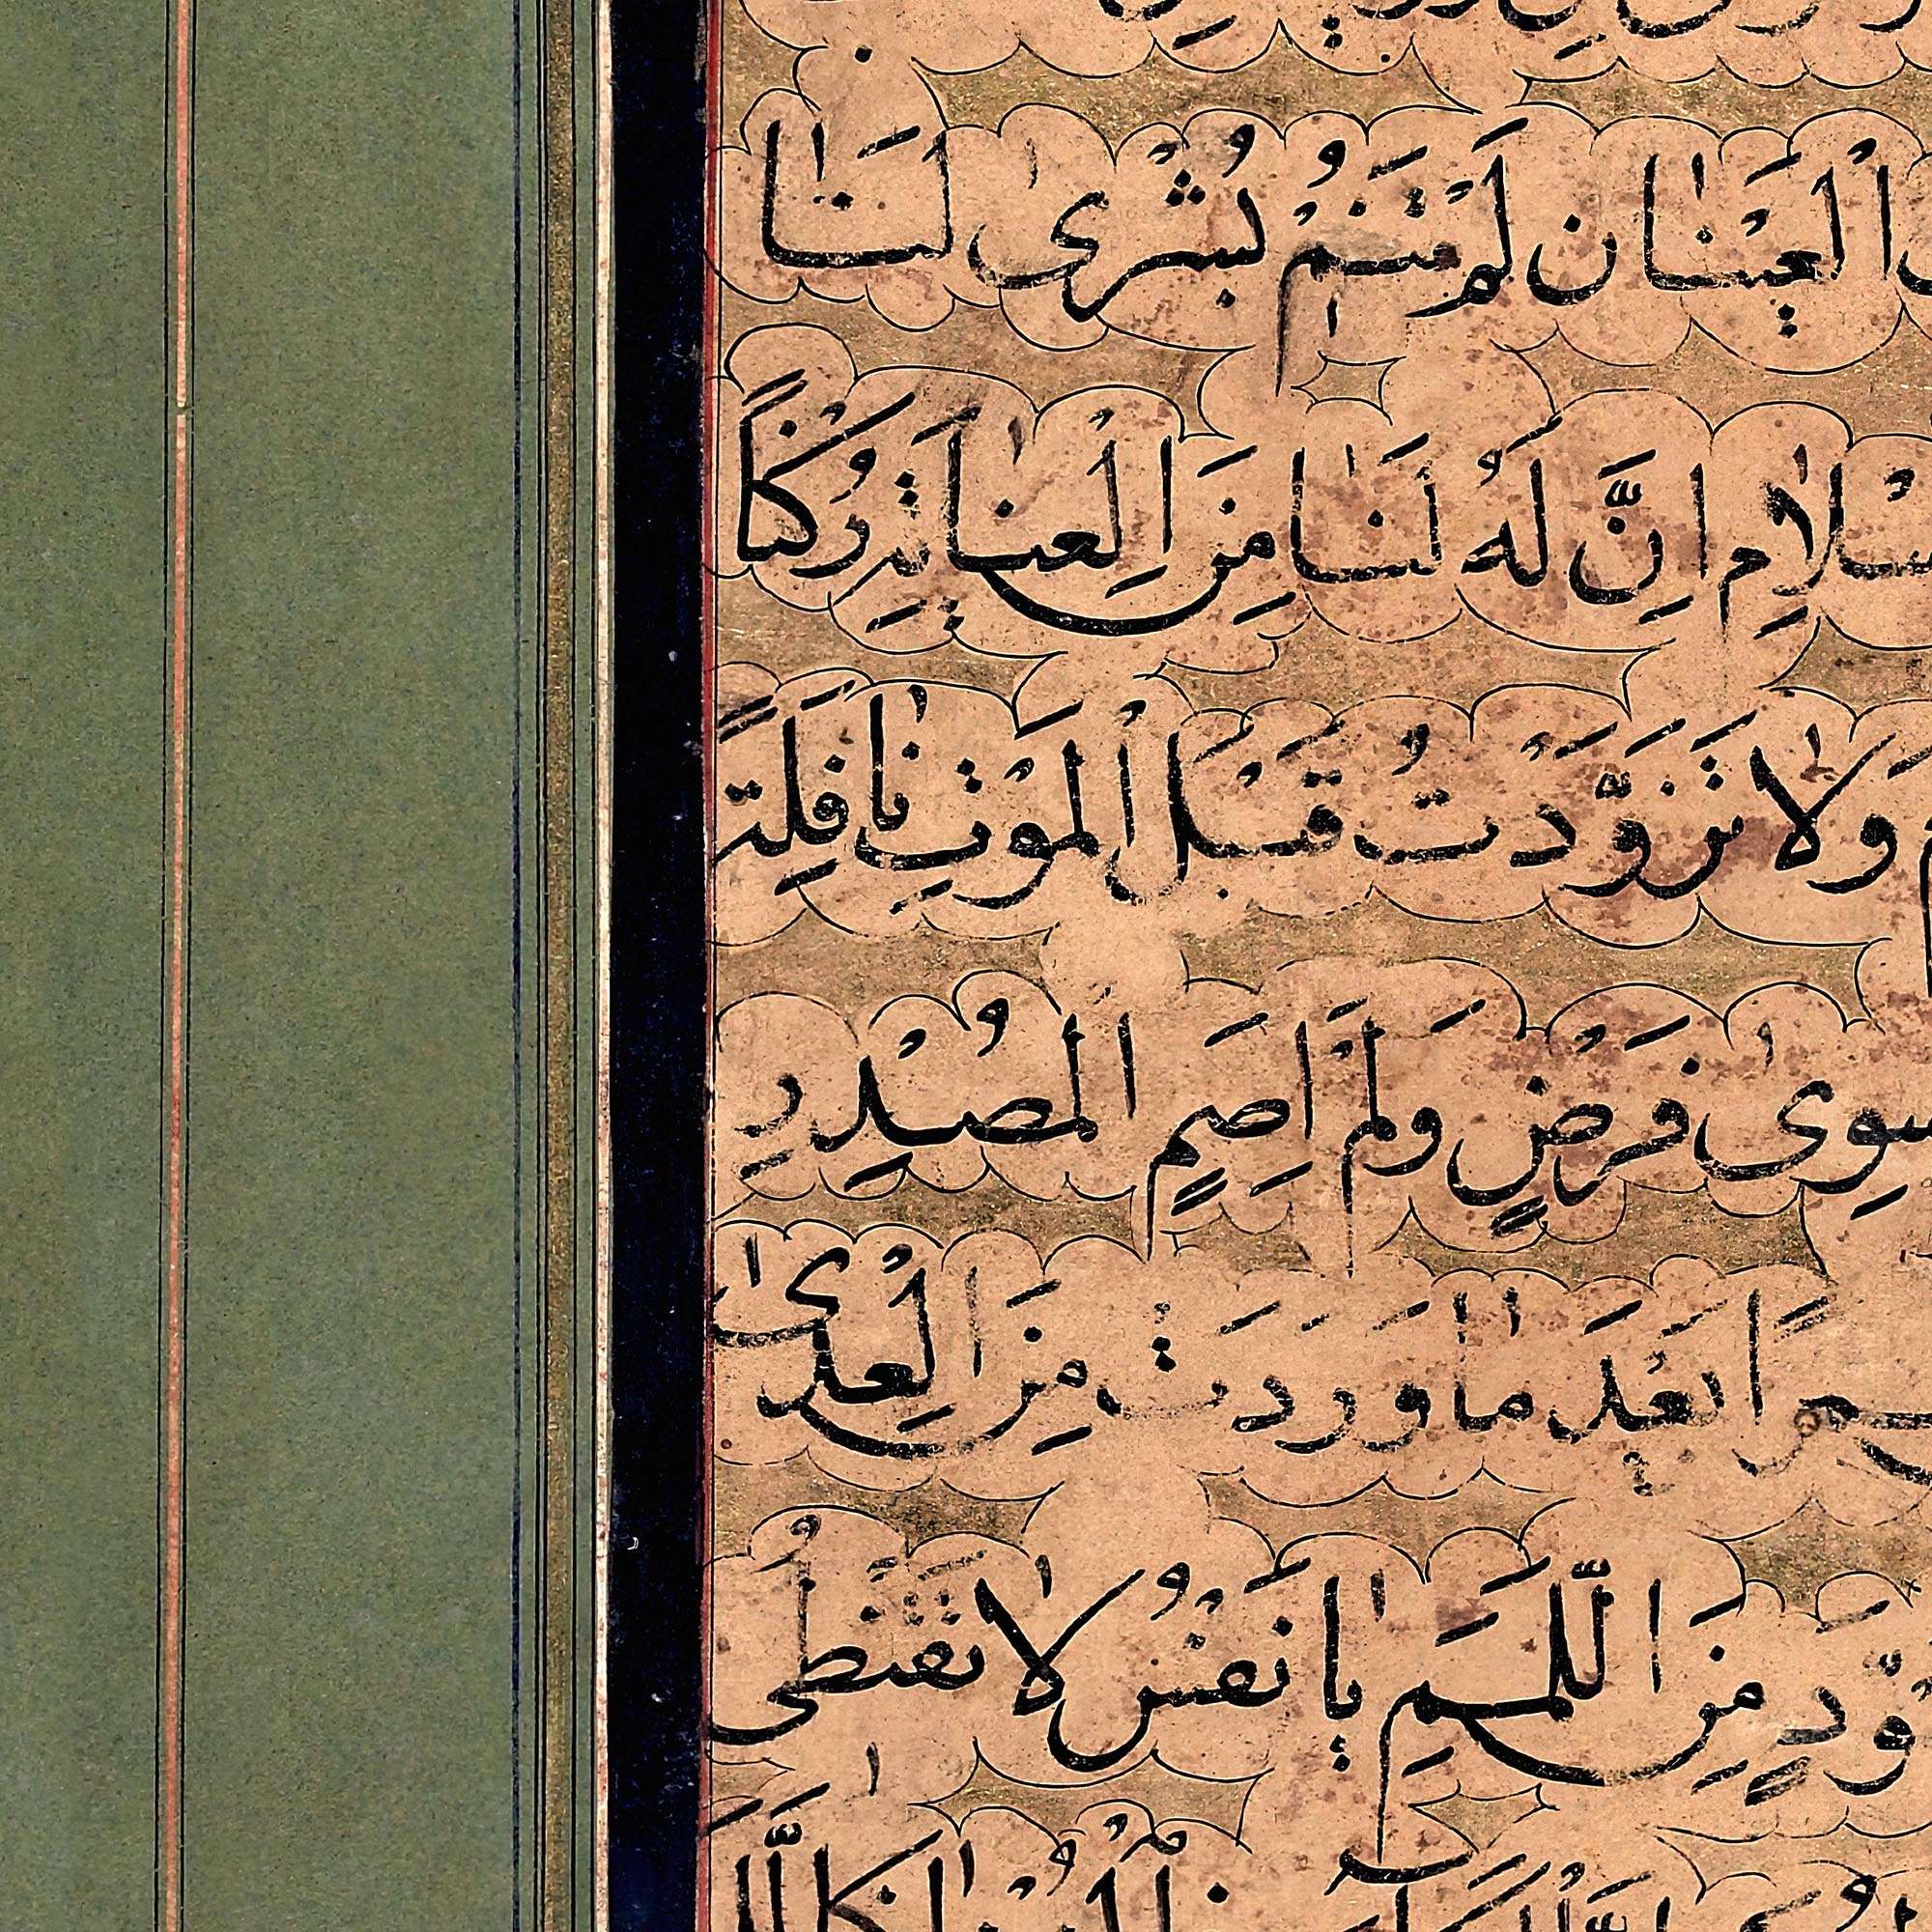 الْعَيْنَانِ لَمْ تَنَمِ بُشْرٰى لَنَا
سْلَامِ اِنَّ لَهُ لَنَا مِنَ الْعِنَايَةِ رُكْنًا
وَلَا تَزَوَّدْتُ قَبْلَ الْمَوْتِ نَافِلَةً
سِوٰى فَرْضٍ وَلَمْ اَصُمِ الْمُصْدِرِ
حُمْرًا بَعْدَ مَا وَرَدَتْ مِنَ الْعِدٰى
وَدٍّ مِنَ اللَّمَمِ يَا نَفْسُ لَا تَقْنَطِى